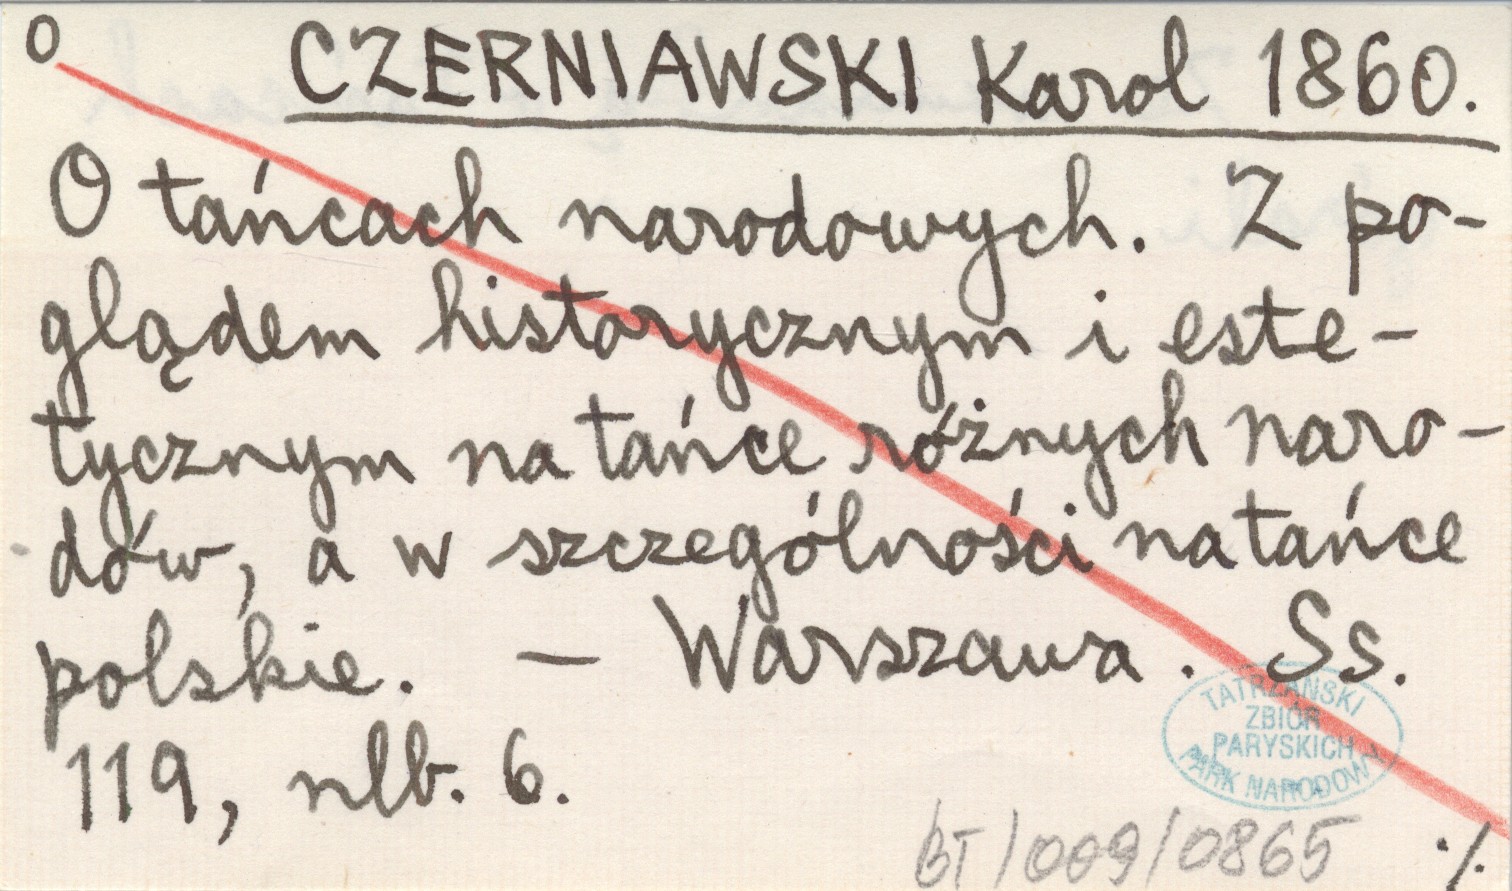 O
CZERNIAWSKI Karol 1860.
O tańcach narodowych. Z po-
glądem historycznym i este-
tycznym na tańce różnych naro-
dów, a w szczególności na tańce
polskie. — Warszawa. Ss.
119, nlb. 6.
TATRZAŃSKI
ZBIÓR
PARYSKICH
PARK NARODOWY
BT/009/0865
./.